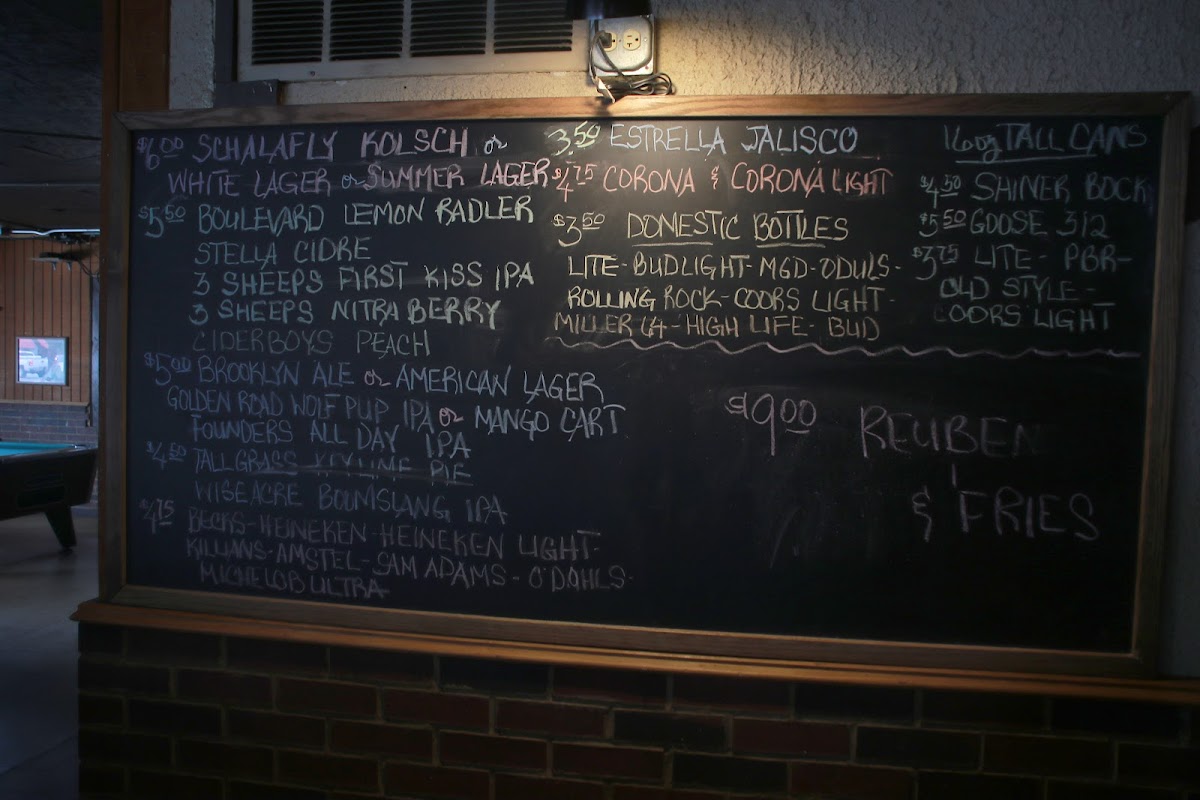 $6.00 SCHALAFLY KOLSCH or
WHITE LAGER or SUMMER LAGER
$5.50 BOULEVARD LEMON RADLER
STELLA CIDRE
3 SHEEPS FIRST KISS IPA
3 SHEEPS NITRA BERRY
CIDERBOYS PEACH
$5.00 BROOKLYN ALE or AMERICAN LAGER
GOLDEN ROAD WOLF PUP IPA or MANGO CART
FOUNDERS ALL DAY IPA
$4.50 TALLGRASS KEY LIME PIE
WISEACRE BOOMSLANG IPA
$4.75 BECKS-HEINEKEN-HEINEKEN LIGHT-
KILLIANS-AMSTEL-SAM ADAMS-O'DOHLS-
MICHELOB ULTRA
3.50 ESTRELLA JALISCO
$4.75 CORONA & CORONA LIGHT
$3.50 DOMESTIC BOTTLES
LITE-BUDLIGHT-MGD-ODULS-
ROLLING ROCK-COORS LIGHT-
MILLER 64-HIGH LIFE-BUD
16oz TALL CANS
$4.50 SHINER BOCK
$5.50 GOOSE 312
$3.75 LITE-PBR-
OLD STYLE-
COORS LIGHT
$9.00 REUBEN
& FRIES